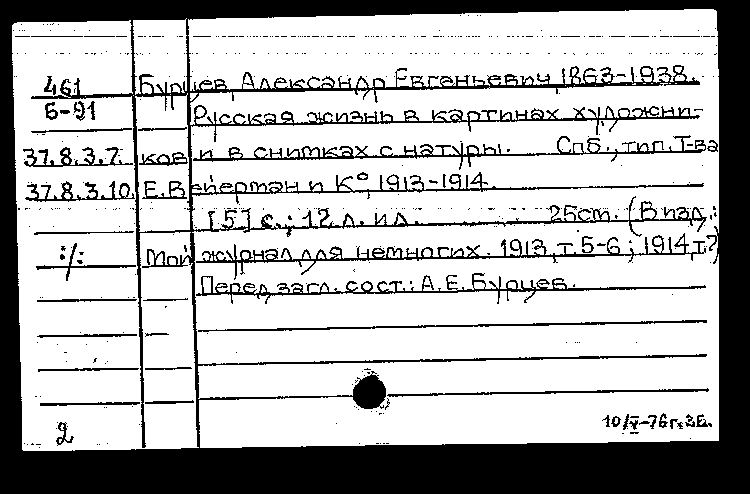 461 Бурцев, Александр Евгеньевич, 1863-1938.
Б-91 Русская жизнь в картинах художни-
37.8.3.7. ков и в снитках с натуры. Спб., тип. Т-ва
37.8.3.10. Е. Вейерман и К°, 1913-1914.
[5] с.; 12 л. ил. 25см. (В изд.:
Мой журнал для немногих. 1913, т. 5-6; 1914, т.?)
Перед загл. сост.: А.Е. Бурцев.
2 10/V-76г. З.Б.